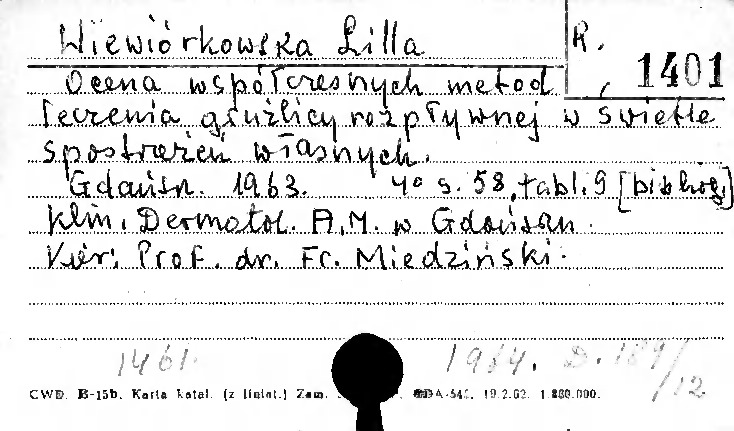 Wiewiórkowska Lilla
R. 1401
Ocena współczesnych metod
leczenia gruźlicy rozpływnej w świetle
spostrzeżeń własnych.
Gdańsk. 1963. 4° s. 58, tabl. 9 [bibliog.]
Klin. Dermatol. A.M. w Gdańsku.
Kier. Prof. dr. Fr. Miedziński.
1461. 1964. D. 189/12
CWD. B-15b. Karta katal. (z liniat.) Zam. GDA-546. 19.2.62. 1.800.000.